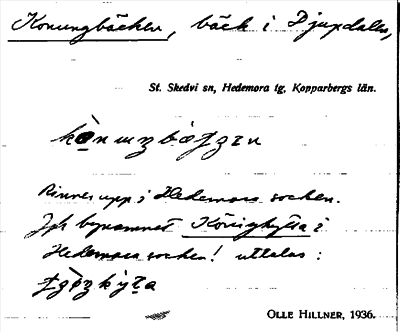 Konungbäcken, bäck i Djupdalen,
St. Skedvi sn, Hedemora tg, Kopparbergs län.
Rinner upp i Hedemora socken.
Jfr bynamnet Königshytta i
Hedemora socken! uttalas:
OLLE HILLNER, 1936.